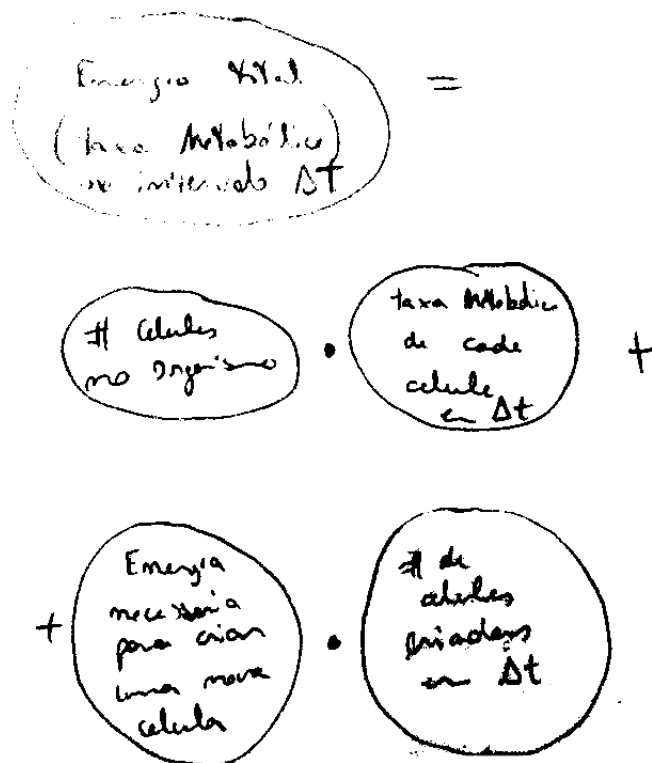 Energia total =
(taxa Metabólica)
no intervalo Δt
# Celulas
no organismo
•
taxa Metabolica
de cada
celula
em Δt
+
+
Energia
necessária
para criar
uma nova
celula
•
# de
celulas
criadas
em Δt